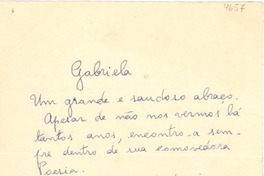 4657
Gabriela
Um grande e saudoso abraço.
Apesar de não nos vermos há
tantos anos, encontro-a sem-
pre dentro de sua comovedora
Poesia.